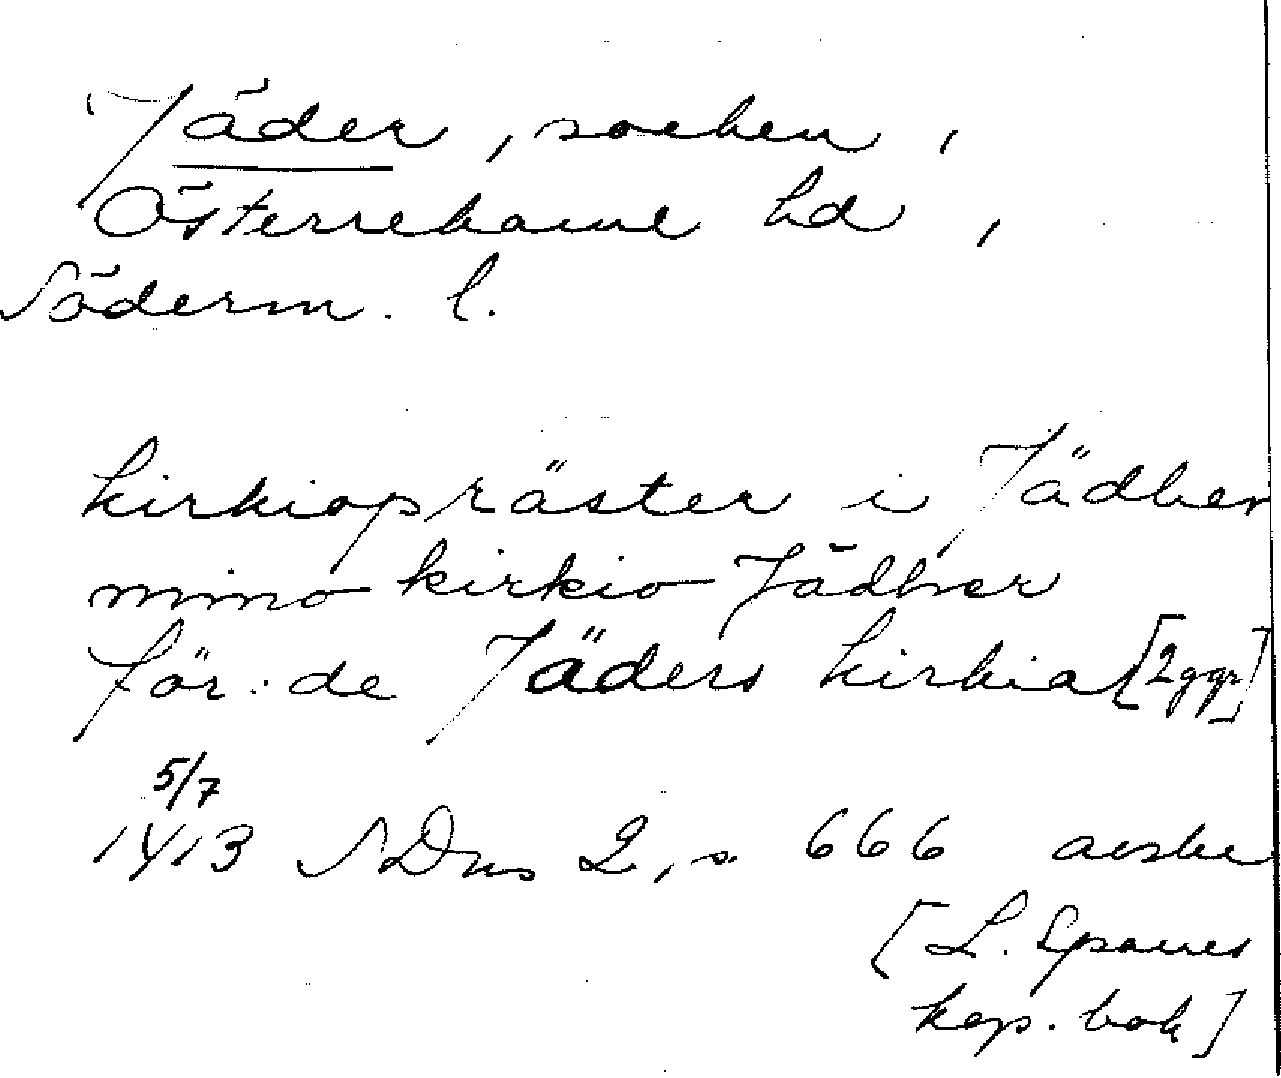 Jäder, socken,
Österrekarne hd,
Söderm. l.
kirkiopräster i Jädher
mino kirkio Jädher
för:de Jäders kirkia [2 ggr]
5/7
1413 SDns 2, s 666 avskr
[L. Spares
kop. bok]